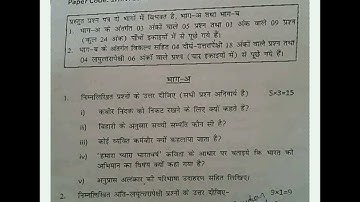 Paper Code:
प्रस्तुत प्रश्न पत्र दो भागों में विभक्त है, भाग–अ तथा भाग–ब
1. भाग–अ के अंतर्गत 03 अंकों वाले 05 प्रश्न तथा 01 अंक वाले 09 प्रश्न
(कुल 24 अंक) पाँचों इकाइयों में से पूछे गये हैं।
2. भाग–ब के अंतर्गत विकल्प सहित 04 दीर्घ–उत्तरापेक्षी 18 अंकों वाले प्रश्न तथा
04 लघुउत्तरापेक्षी 06 अंकों वाले प्रश्न (चार इकाइयों में) से पूछे गये हैं।
भाग–अ
1. निम्नलिखित प्रश्नों के उत्तर दीजिए (सभी प्रश्न अनिवार्य हैं) 5×3=15
i) कबीर निंदक को निकट रखने के लिए क्यों कहते हैं?
ii) बिहारी के अनुसार सच्ची सम्पति कौन सी है?
iii) कोई व्यक्ति कर्मवीर क्यों कहलाया जाता है?
iv) 'हमारा प्यारा भारतवर्ष' कविता के आधार पर बताइये कि भारत को
अभिमान का विषय क्यों कहा गया है?
v) अनुप्रास अलंकार की परिभाषा उदाहरण सहित लिखिए।
2. निम्नलिखित अति–लघुत्तरापेक्षी प्रश्नों के उत्तर दीजिए– 9×1=9